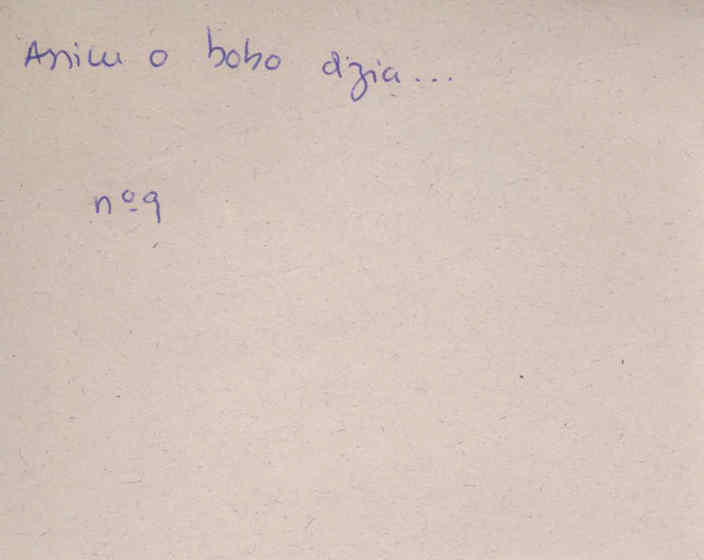 Assim o bobo dizia...
nº 9